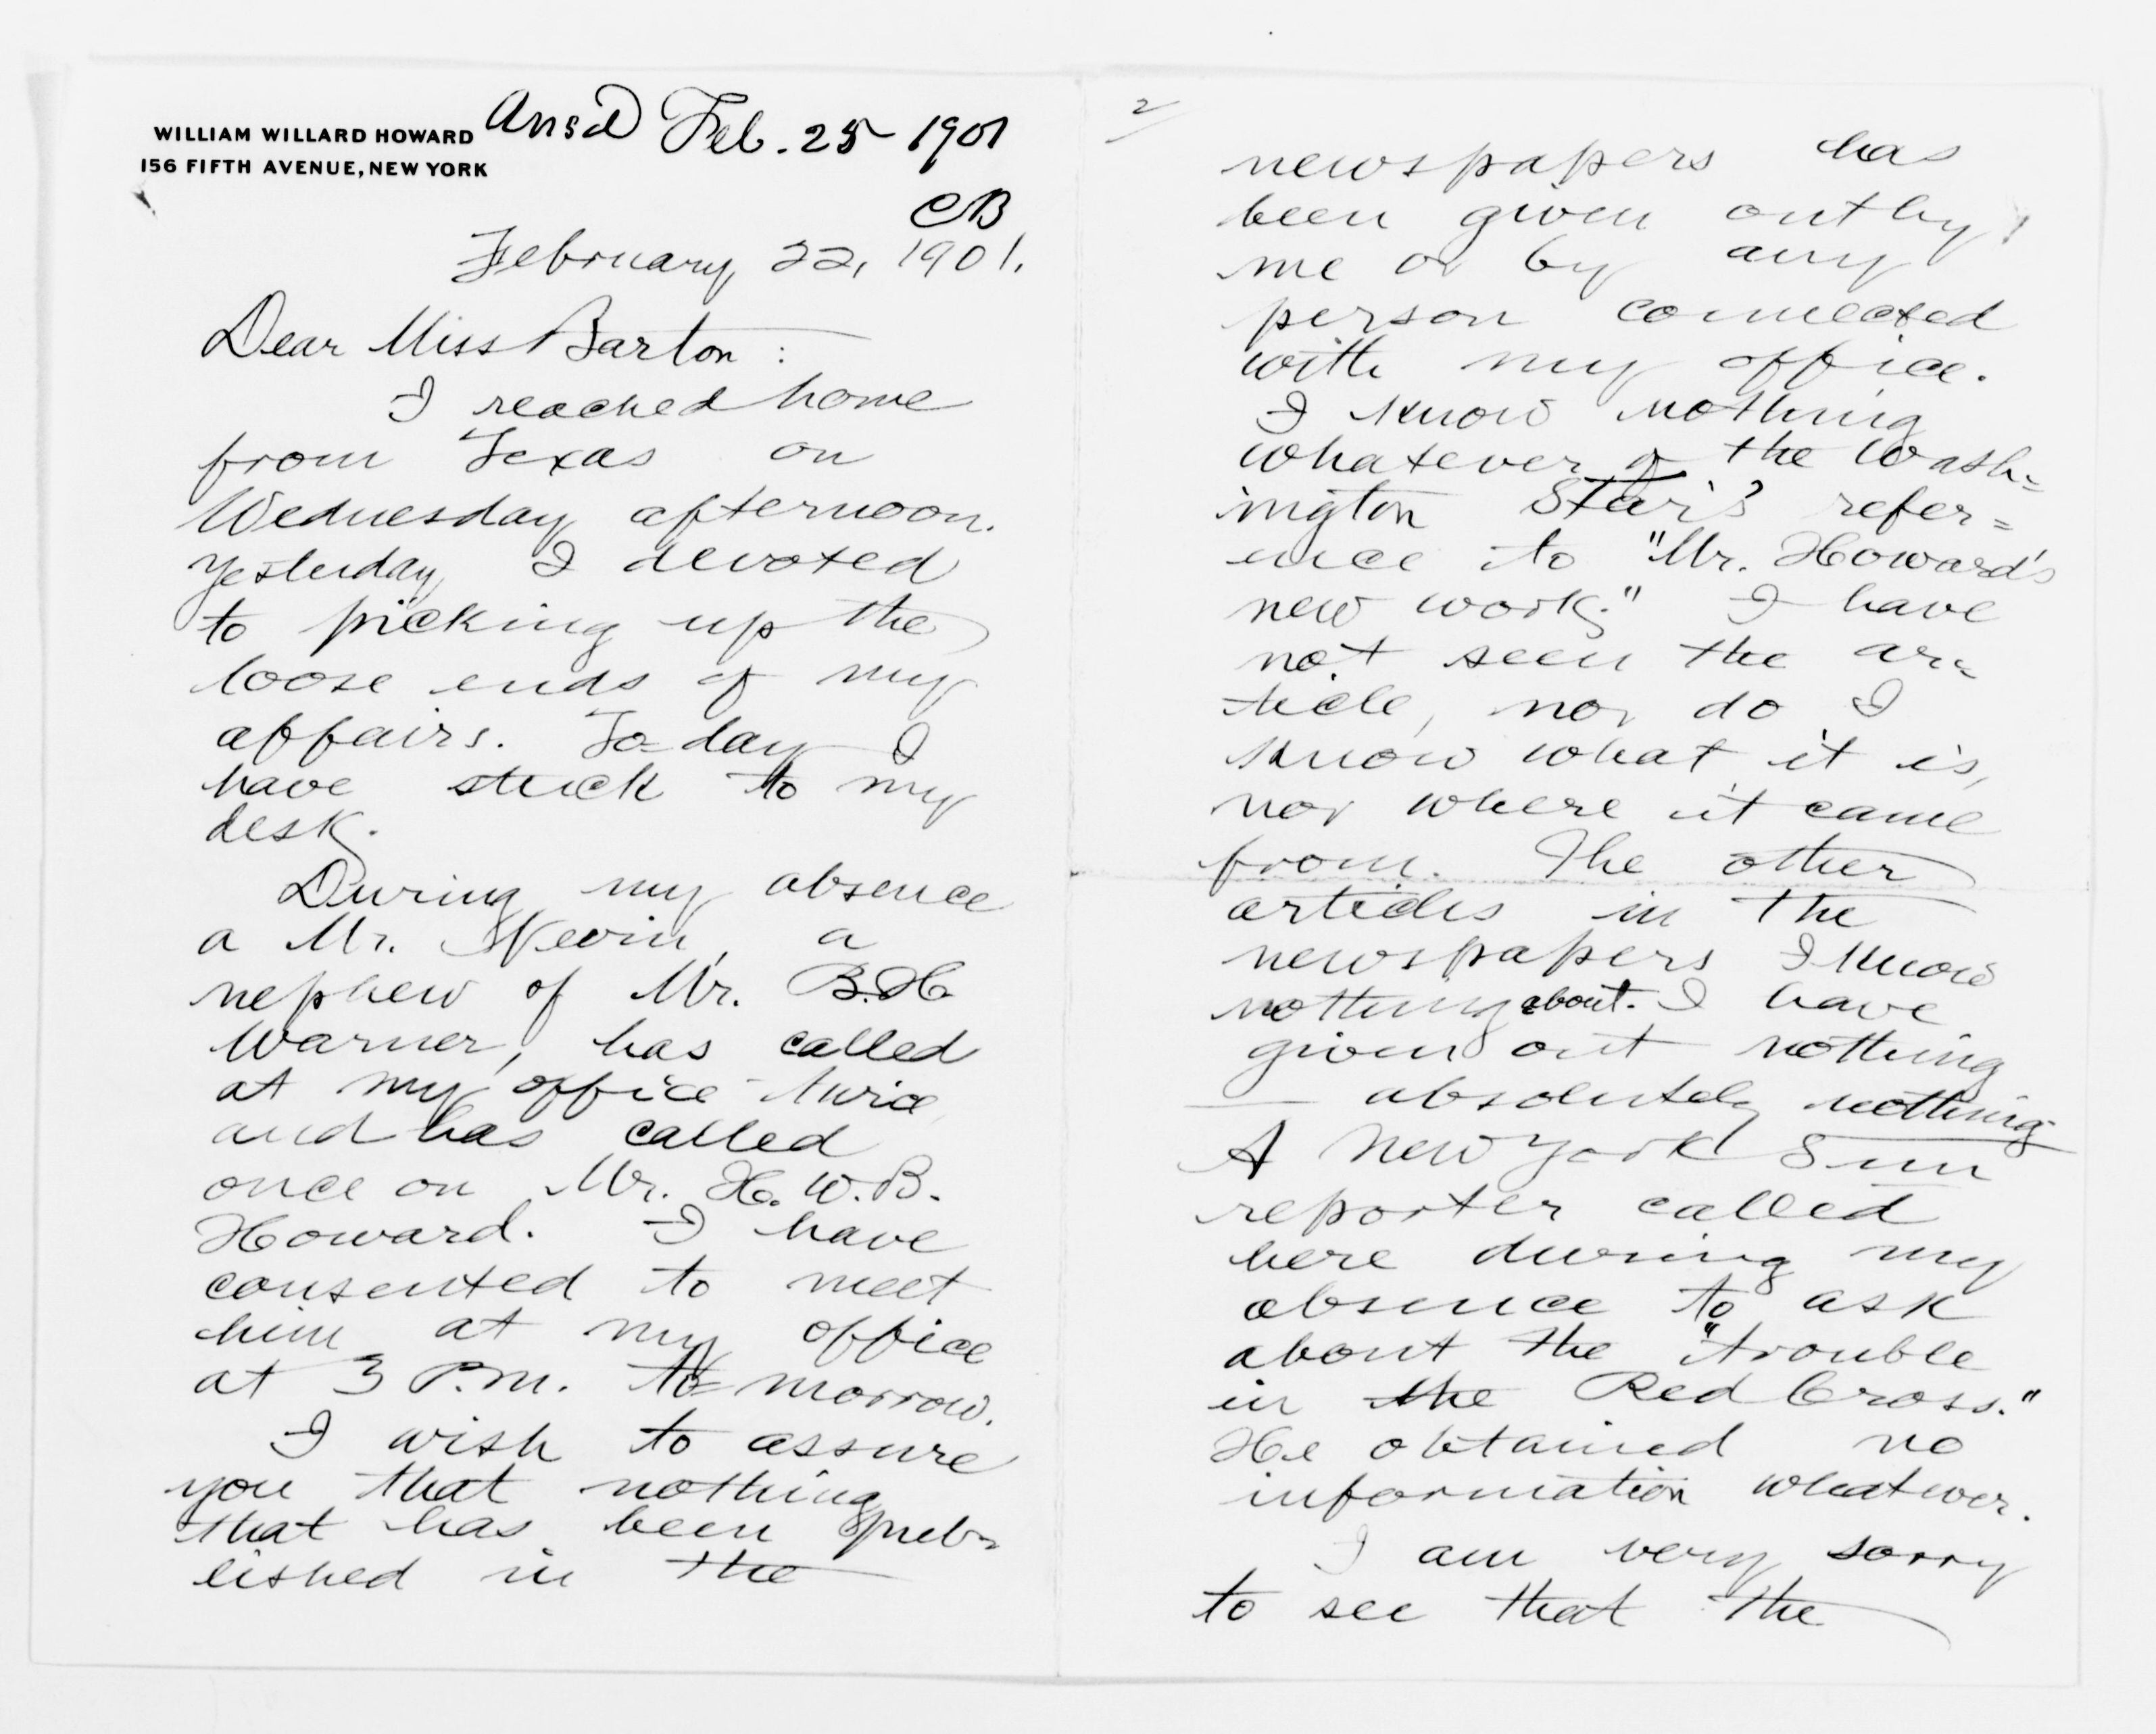 WILLIAM WILLARD HOWARD
156 FIFTH AVENUE, NEW YORK
Ansd Feb. 25 1901
CB
February 22, 1901.
Dear Miss Barton:
I reached home
from Texas on
Wednesday afternoon.
Yesterday I devoted
to picking up the
loose ends of my
affairs. To=day I
have stuck to my
desk.
During my absence
a Mr. Nevin, a
nephew of Mr. B.H.
Warner, has called
at my office twice
and has called
once on Mr. H. W. B.
Howard. I have
consented to meet
him at my office
at 3 P.M. to=morrow.
I wish to assure
you that nothing
that has been pub=
lished in the
2
newspapers has
been given out by
me or by any
person connected
with my office.
I know nothing
whatever of the Wash=
ington Star's refer=
ence to "Mr. Howard's
new work." I have
not seen the ar=
ticle, nor do I
know what it is,
nor where it came
from. The other
articles in the
newspapers I know
nothing about. I have
given out nothing
— absolutely nothing
A New York Sun
reporter called
here during my
absence to ask
about the "trouble
in the Red Cross."
He obtained no
information whatever.
I am very sorry
to see that the